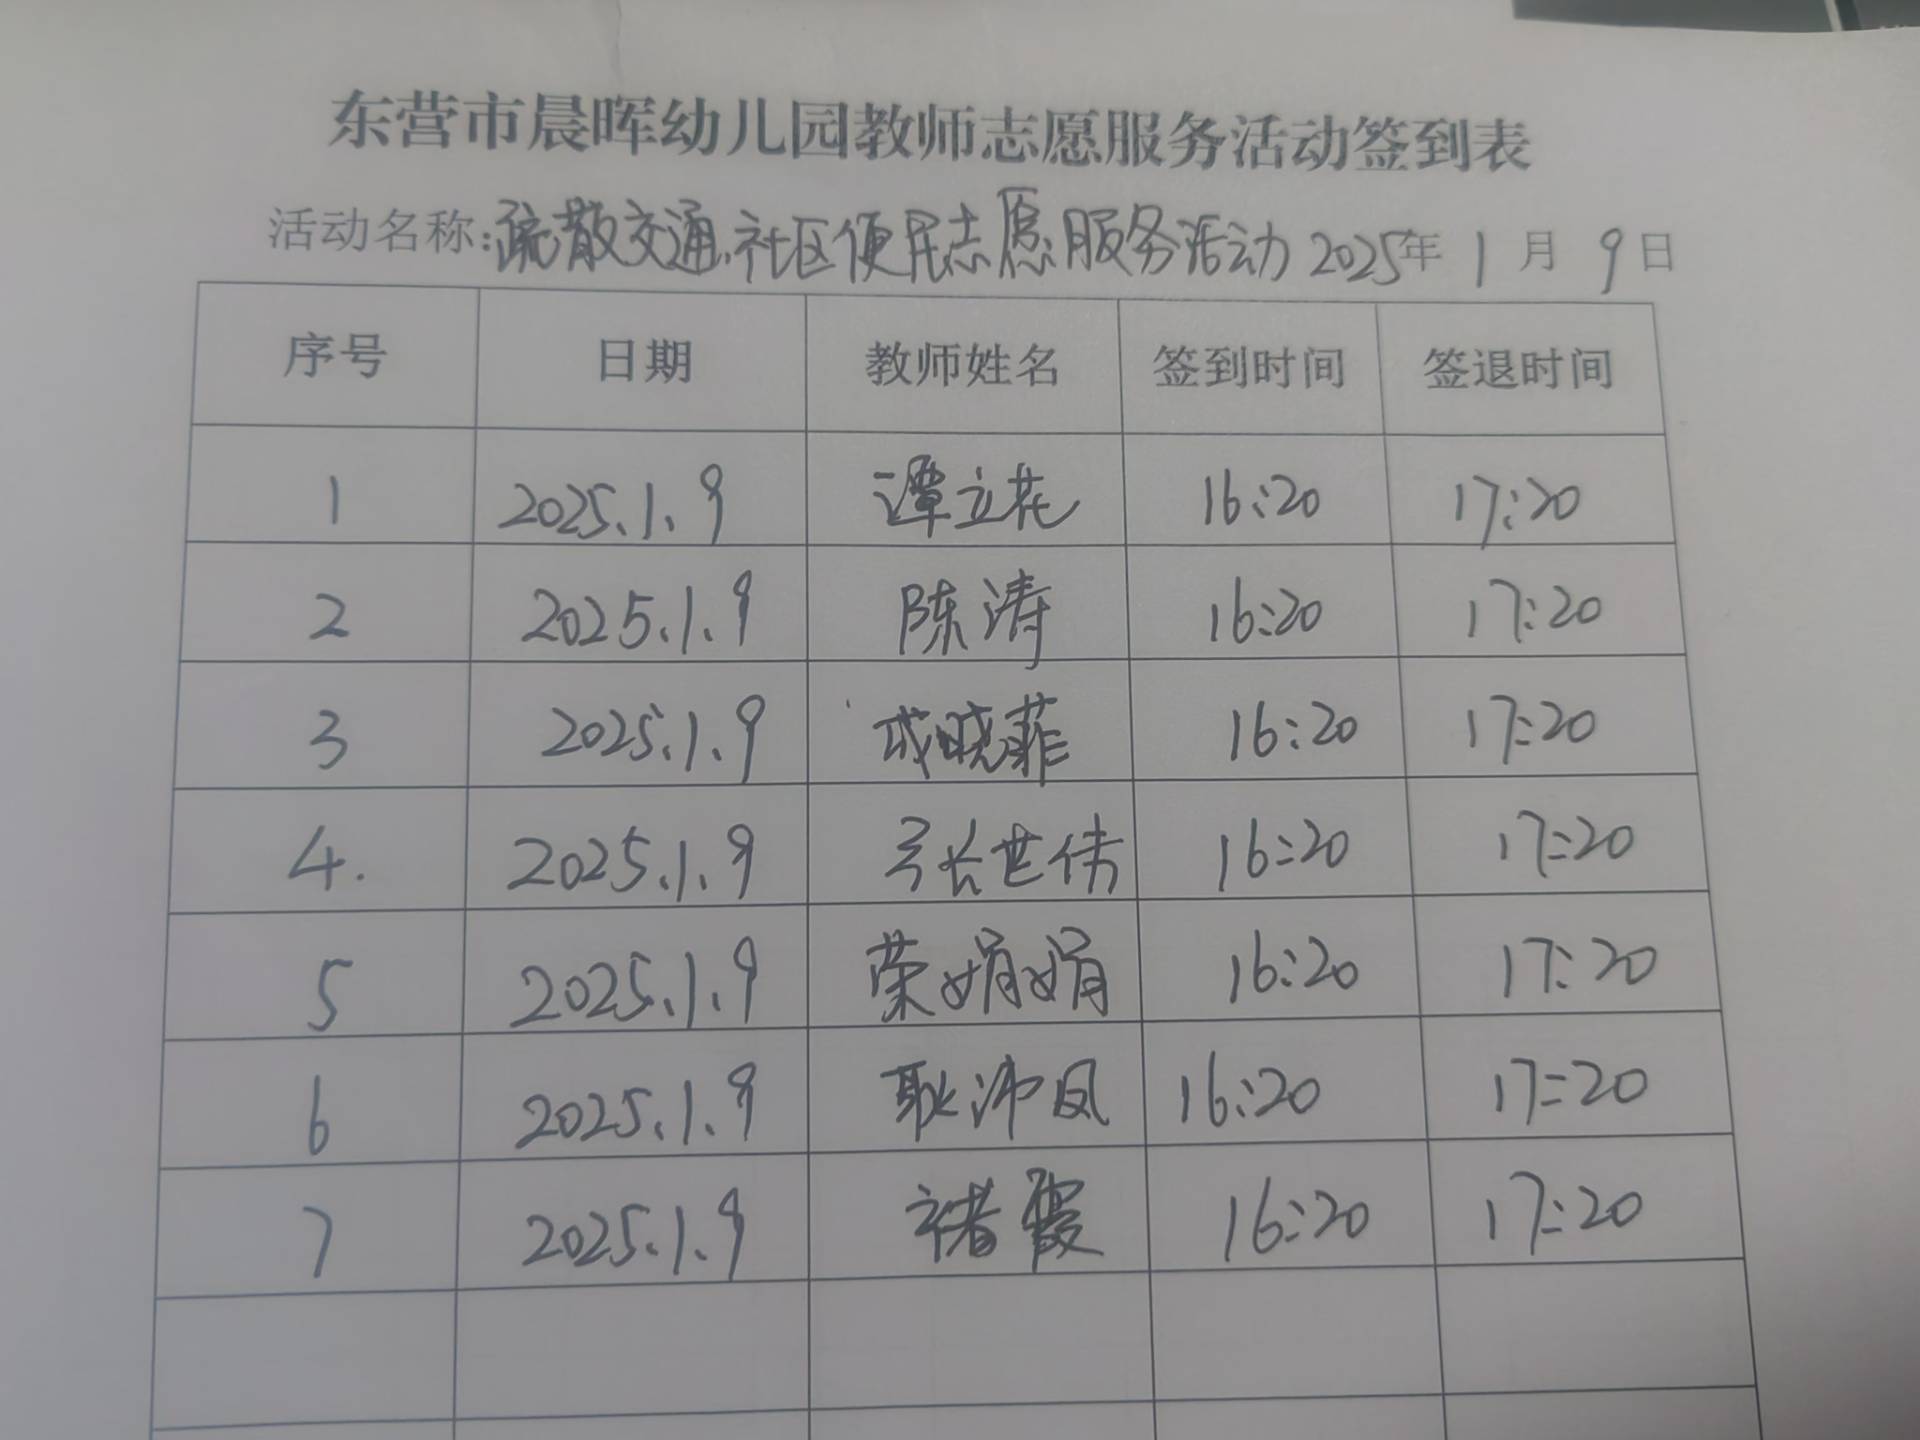 东营市晨晖幼儿园教师志愿服务活动签到表
活动名称:疏散交通,社区便民志愿服务活动 2025年 1 月 9 日
序号 日期 教师姓名 签到时间 签退时间
1 2025.1.9 谭立花 16:20 17:20
2 2025.1.9 陈涛 16:20 17:20
3 2025.1.9 成晓菲 16:20 17:20
4. 2025.1.9 张世伟 16:20 17:20
5 2025.1.9 荣娟娟 16:20 17:20
6 2025.1.9 耿沛凤 16:20 17:20
7 2025.1.9 褚霞 16:20 17:20